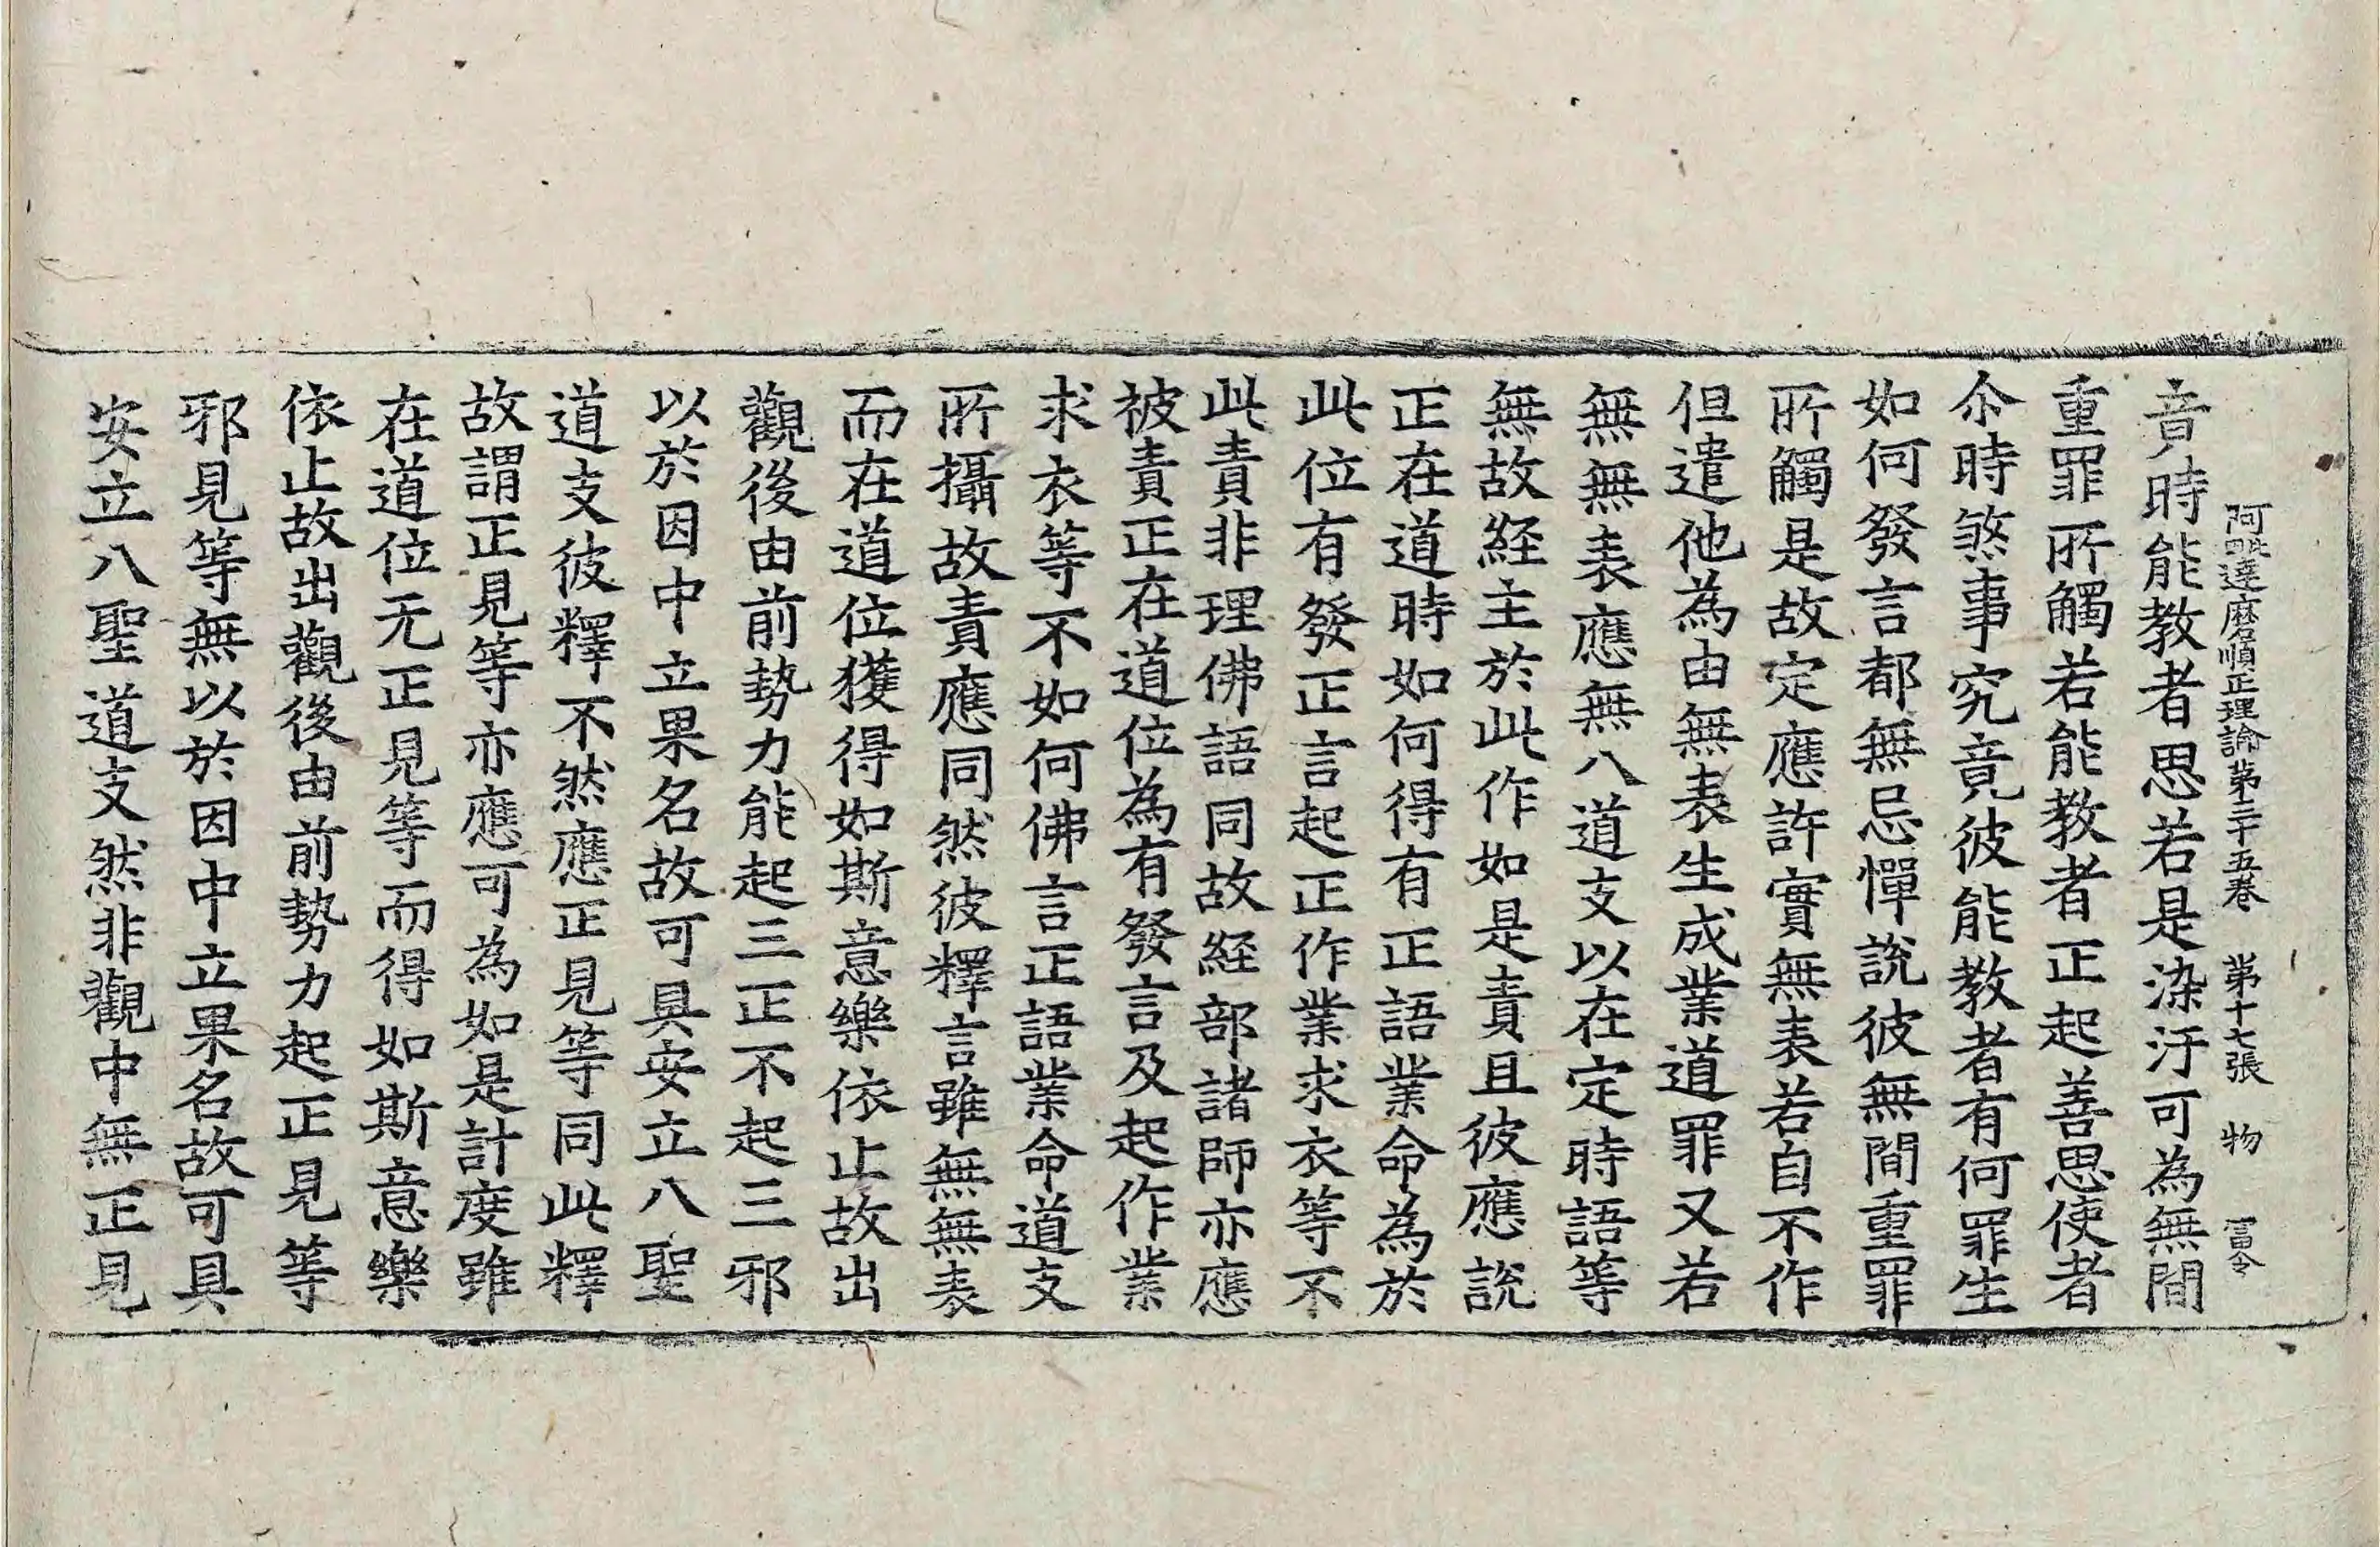 阿毗達磨順正理論第三十五卷 第十七張 物 富令
音時能教者思若是染汙可為無間
重罪所觸若能教者正起善思使者
尒時煞事究竟彼能教者有何罪生
如何發言都無忌憚說彼無間重罪
所觸是故定應許實無表若自不作
但遣他為由無表生成業道罪又若
無無表應無八道支以在定時語等
無故経主於此作如是責且彼應說
正在道時如何得有正語業命為於
此位有發正言起正作業求衣等不
此責非理佛語同故経部諸師亦應
被責正在道位為有發言及起作業
求衣等不如何佛言正語業命道支
所攝故責應同然彼釋言雖無無表
而在道位獲得如斯意樂依止故出
觀後由前勢力能起三正不起三邪
以於因中立果名故可具安立八聖
道支彼釋不然應正見等同此釋
故謂正見等亦應可為如是計度雖
在道位无正見等而得如斯意樂
依止故出觀後由前勢力起正見等
邪見等無以於因中立果名故可具
安立八聖道支然非觀中無正見